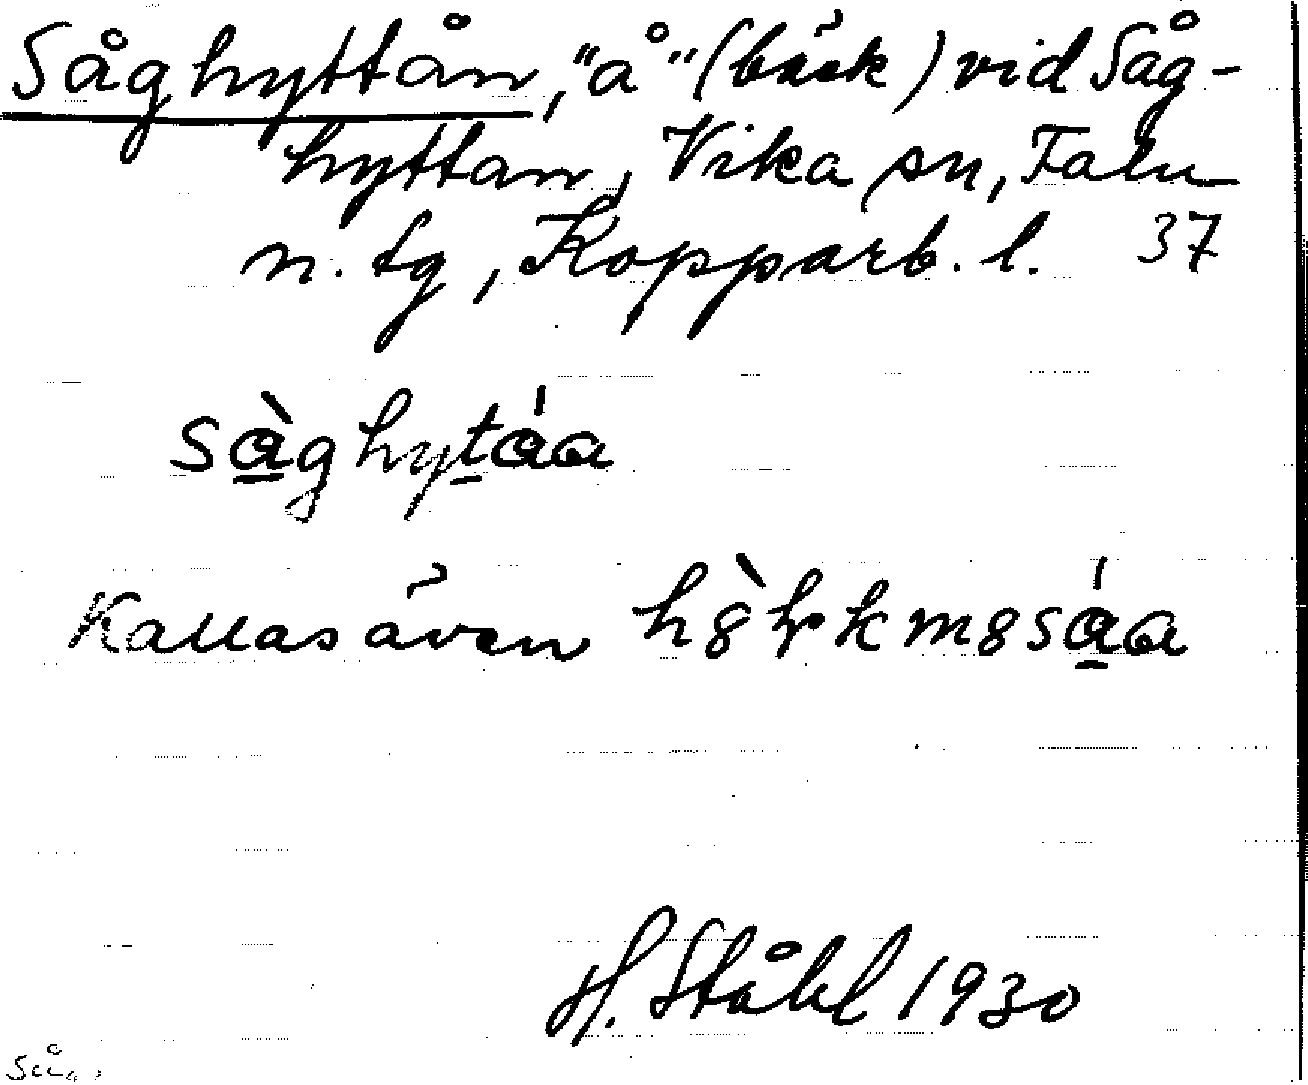 Såghyttån, "å" (bäck) vid Såg-
hyttan, Vika sn, Falu
n. tg, Kopparb. l. 37
sàghytáa
Kallas även
H. Ståhl 1930